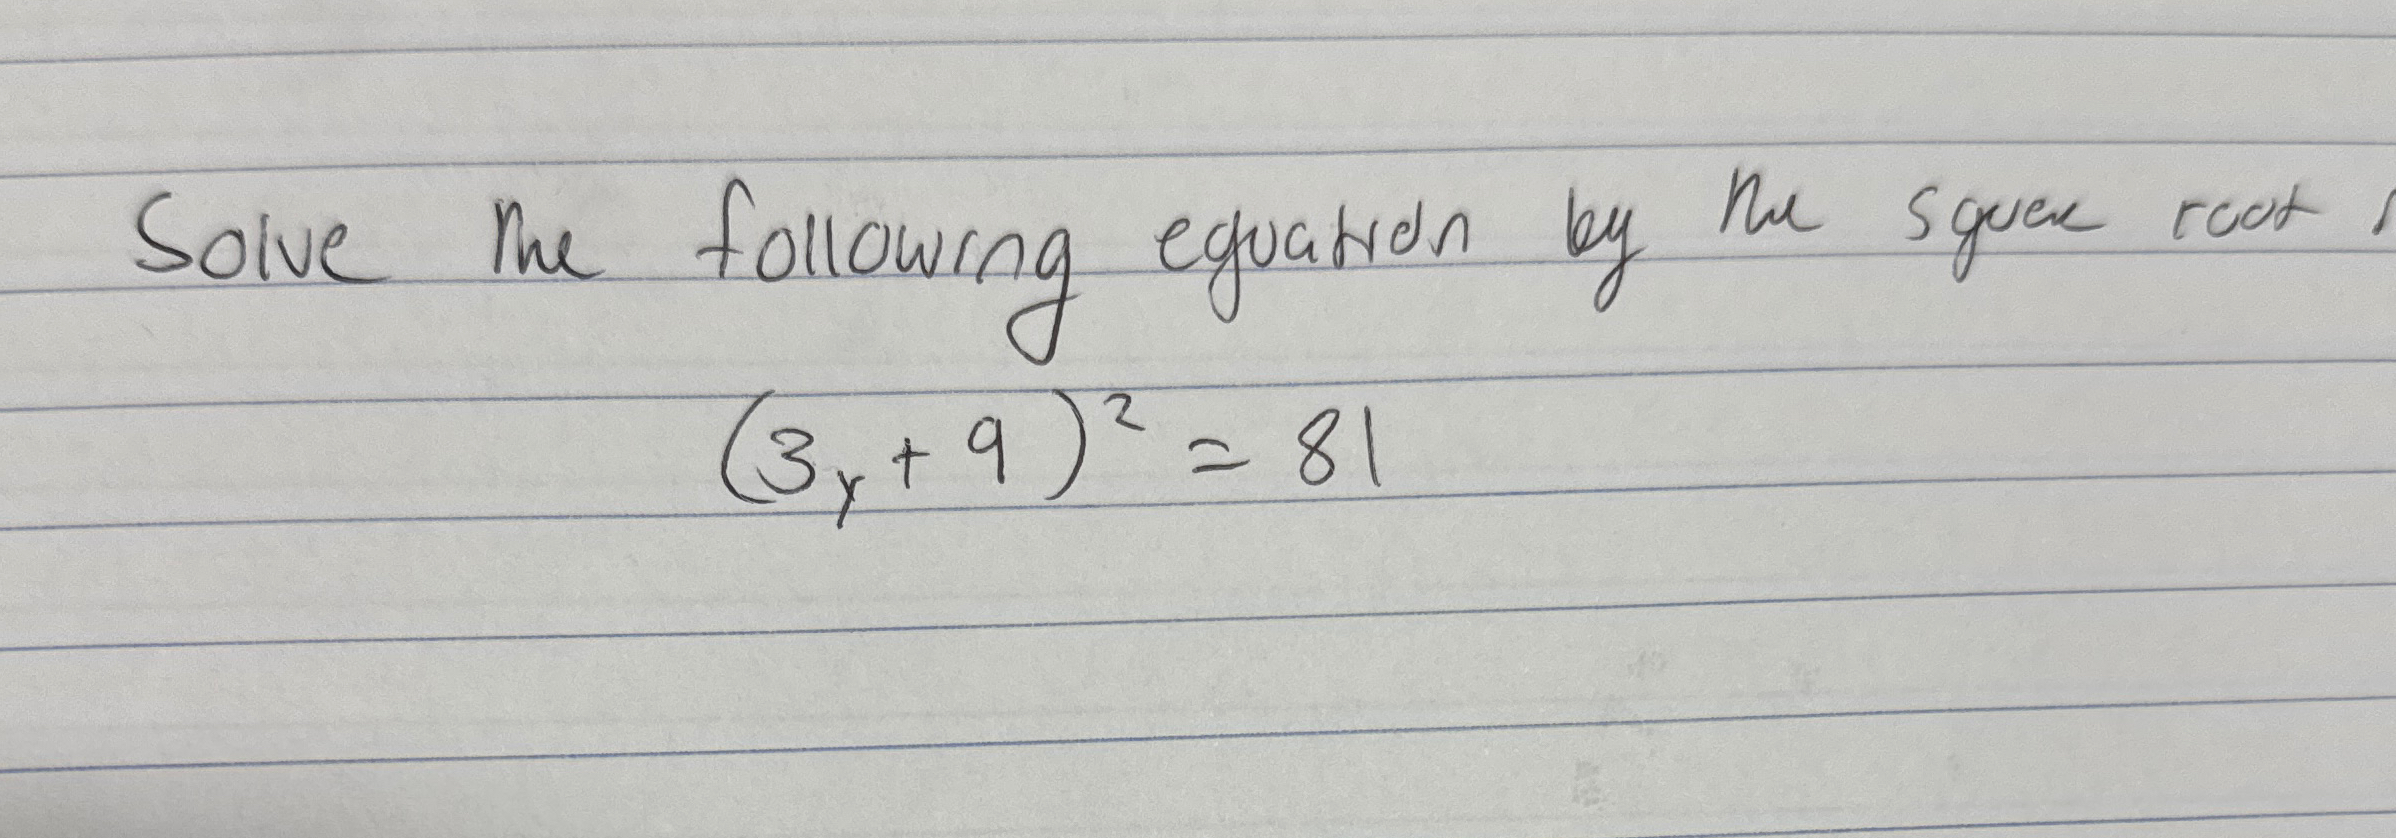 Solve the following equation by the squere root
(3y + 9)² = 81